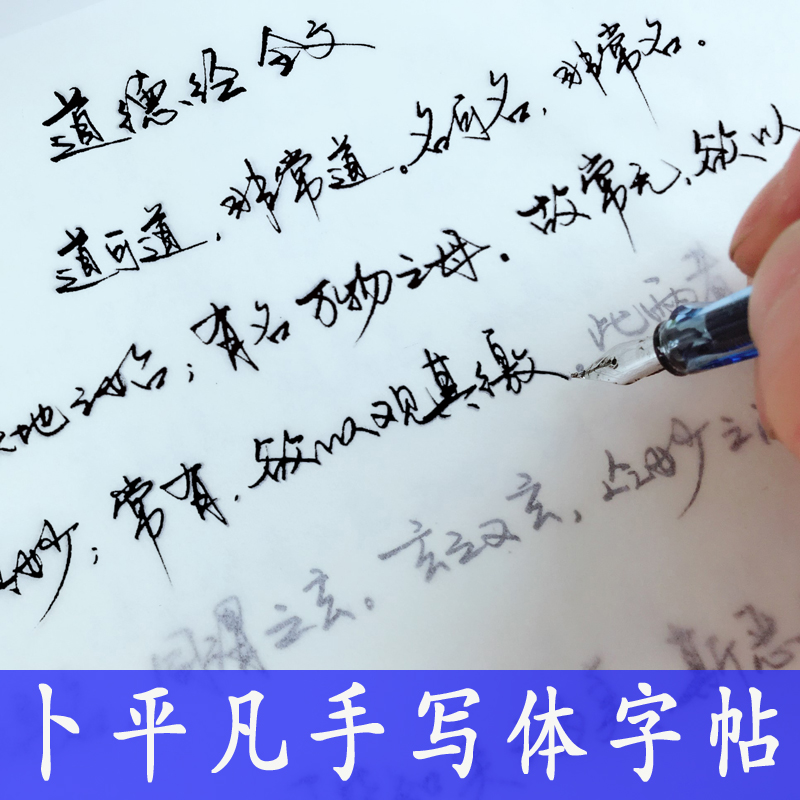 道德经全文
道可道,非常道。名可名,非常名。
地之始;有名万物之母。故常无,欲以
妙;常有,欲以观其徼。此两者
同谓之玄。玄之又玄,众妙之
斯恶
卜平凡手写体字帖